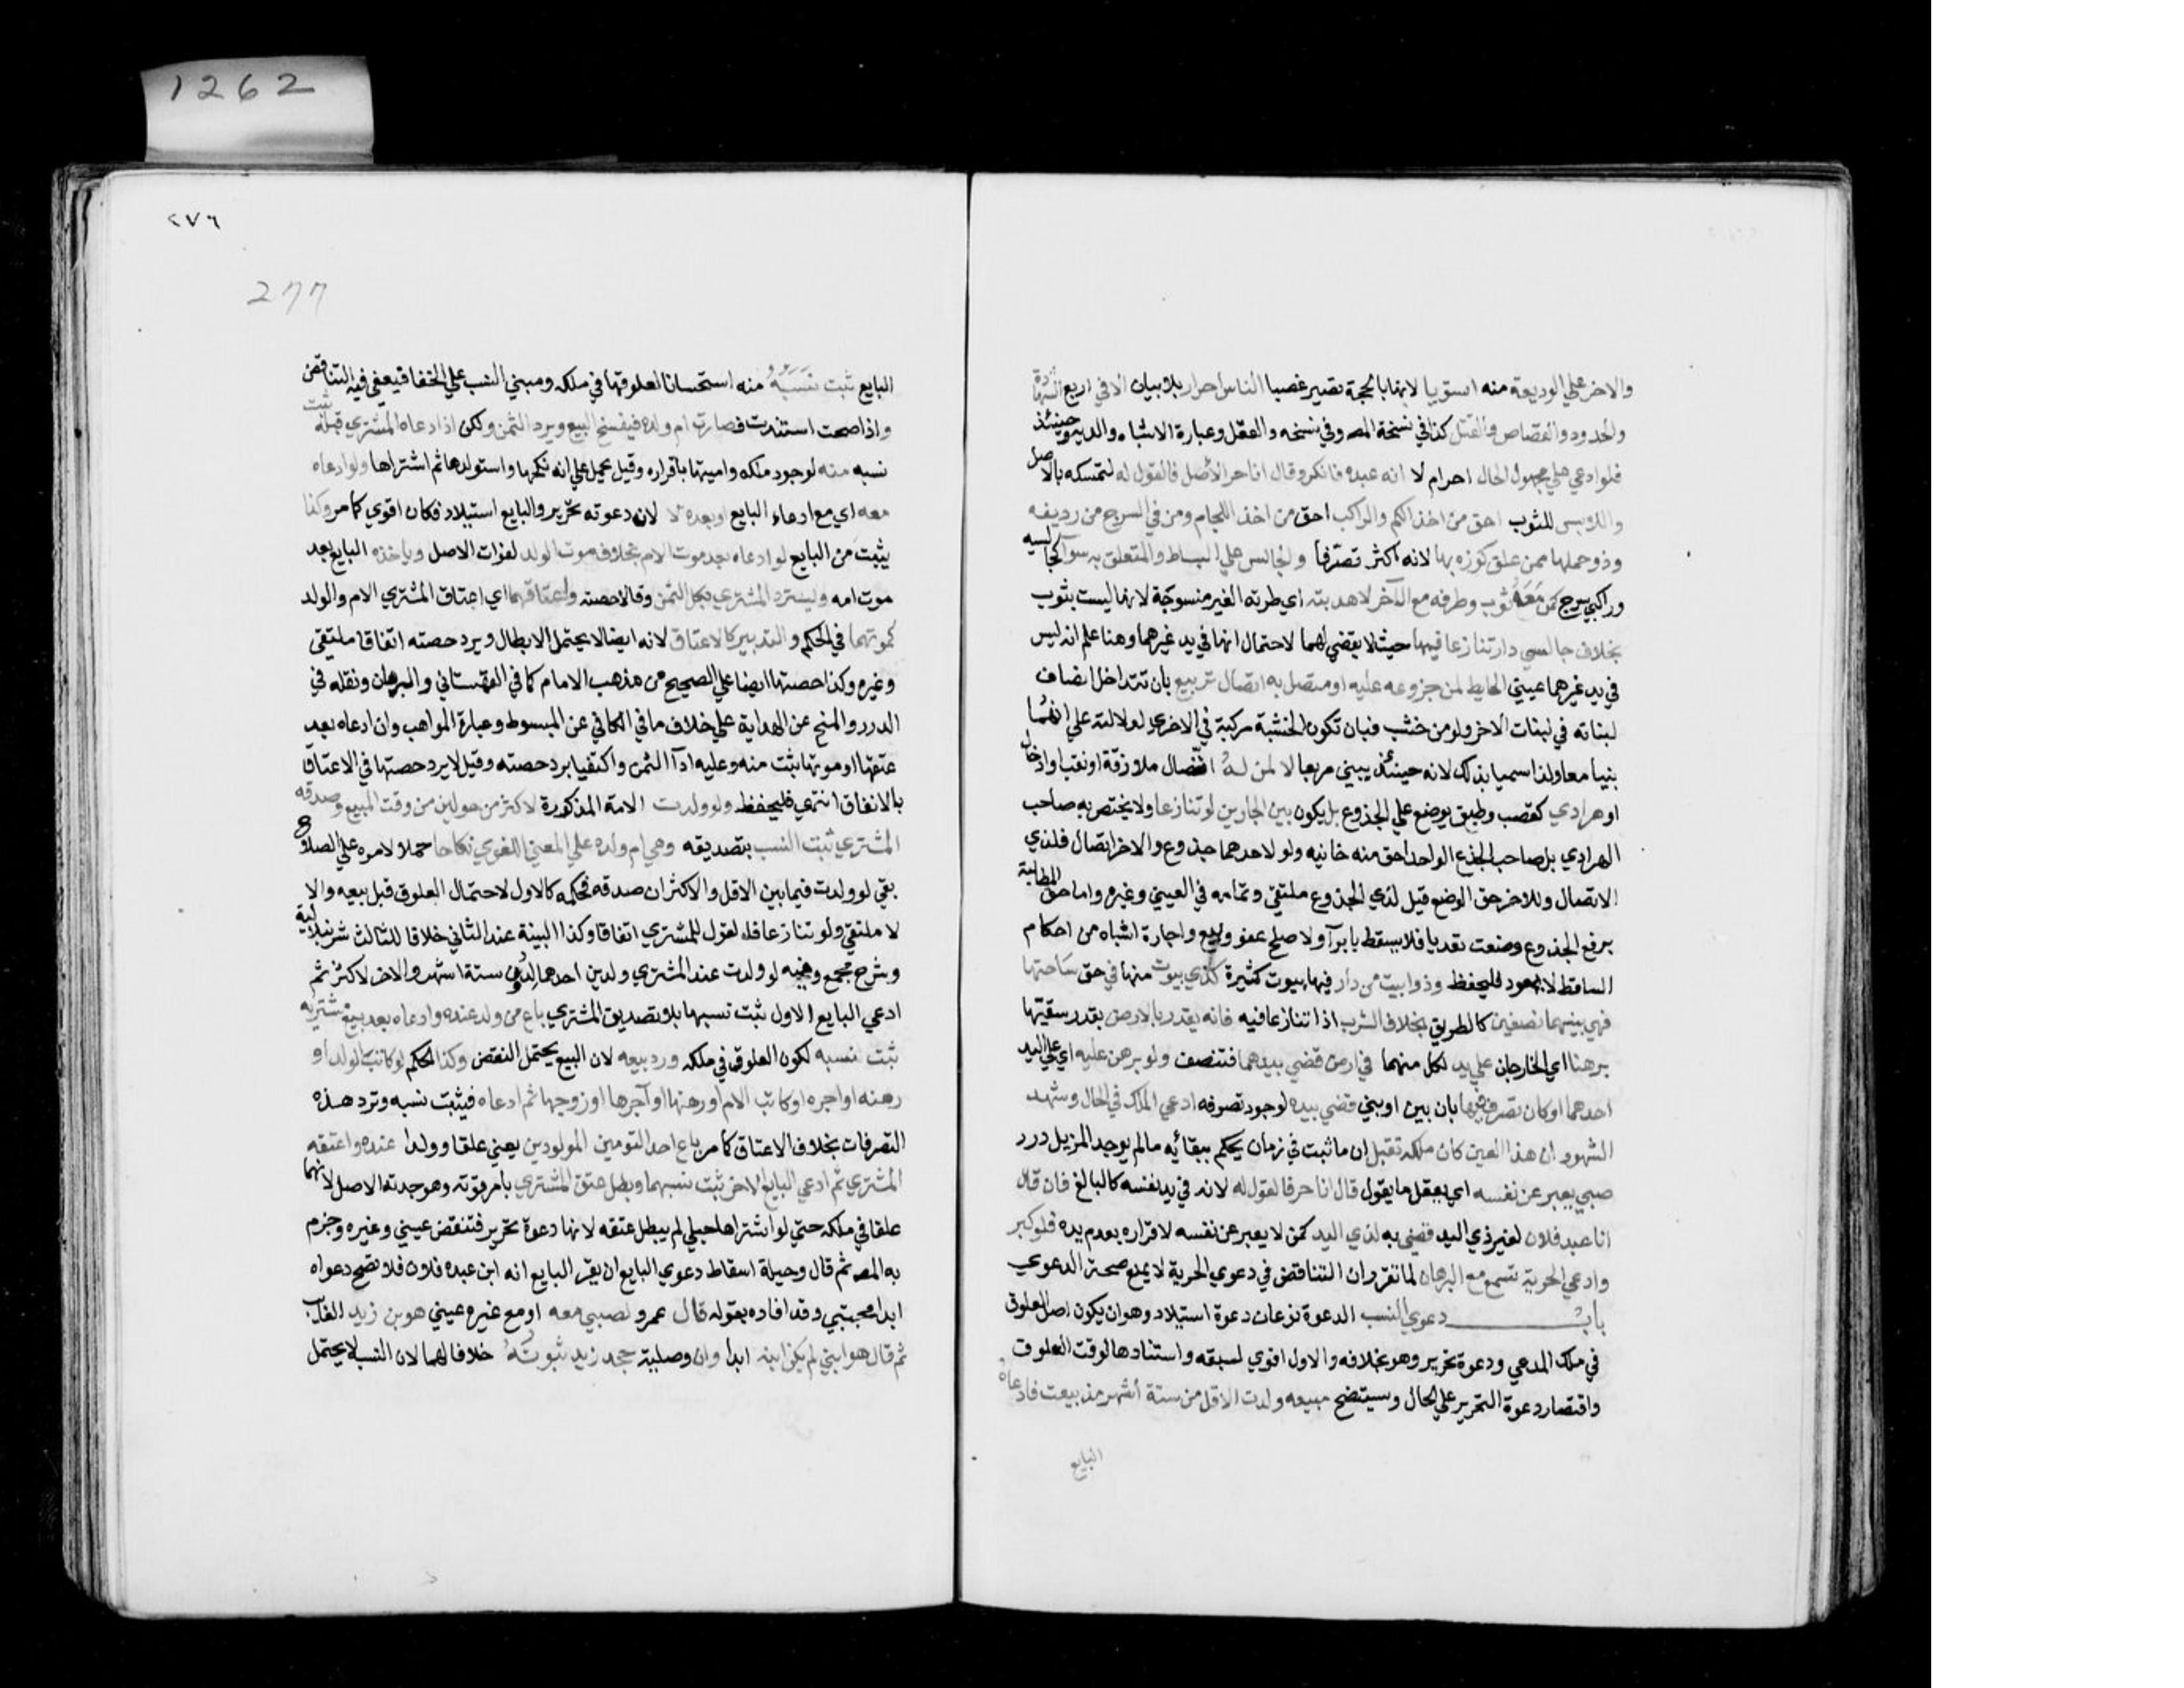 1262
والاخر علي الوديعة منه استويا لانها بالحجة تصير غصبا الناس احرار بلا بيان الا في اربع الشهادة
والحدود والقصاص والقتل كذا في نسخة المص وفي نسخه والعقل وعبارة الاشباه والدية وحينئذ
فلو ادعي علي مجهول الحال احرام لا انه عبده فانكر وقال انا حر الأصل فالقول له لتمسكه بالاصل
واللابس للثوب احق من اخذ الكم والراكب احق من اخذ اللجام ومن في السرج من رديفه
وذو حملها ممن علق كوزه بها لانه اكثر تصرفا والجالس علي البساط والمتعلق به سوا كجالسيه
وراكبي سرج كمن مَعَهُ ثوب وطرفه مع الآخر لا هدبته اي طرته الغير منسوجة لانها ليست بثوب
بخلاف جالسي دار تنازعا فيها حيث لا يقضي لهما لاحتمال انها في يد غيرهما وهنا علم انه ليس
في يد غيرهما عيني الحايط لمن جزوعه عليه او متصل به اتصال تربيع بان تتداخل انصاف
لبناته في لبنات الاخر ولو من خشب فبان تكون الخشبة مركبة في الاخري لدلالته علي انهما
بنيا معا ولذا سمي بذلك لانه حينئذ يبني مربعا لا لمن لهُ اتصال ملازقة او نقب او ادخال
او هرادي كقصب وطبق يوضع علي الجذوع بل يكون بين الجارين لو تنازعا ولا يختص به صاحب
الهرادي بل صاحب الجذع الواحد احق منه خانيه ولو لاحدهما جذوع والاخر اتصال فلذي
الاتصال وللاخر حق الوضع قيل لذي الجذوع ملتقي وتمامه في العيني وغيره واما حق المطالبة
برفع الجذوع وضعت تعديا فلا يسقط بابرآ ولا صلح عفو وبيع واجارة اشباه من احكام
الساقط لا يعود فليحفظ وذو ابيت من دار فيها بيوت كثيرة كذي بيوت منها في حق ساحتها
فهي بينهما نصفين كالطريق بخلاف الشرب اذا تنازعا فيه فانه يقدر بالارض بقدر سقيتها
برهنا اي الخارجان علي يد لكل منهما في ارض قضي بيدهما فتنصف ولو برهن عليه اي علي اليد
احدهما او كان تصرف فيها بان بين او بني قضي بيده لوجود تصرفه ادعي الملك في الحال وشهد
الشهود ان هذا العين كان ملكه تقبل ان ما ثبت في زمان يحكم ببقائه ما لم يوجد المزيل درر
صبي يعبر عن نفسه اي يعقل ما يقول قال انا حر فالقول له لانه في يد نفسه كالبالغ فان قال
انا عبد فلان لغير ذي اليد قضي به لذي اليد كمن لا يعبر عن نفسه لاقراره بعدم يده فلو كبر
وادعي الحرية تسمع مع البرهان لما تقرر ان التناقض في دعوي الحرية لا يمنع صحة الدعوي
باب دعوي النسب الدعوة نوعان دعوة استيلاد وهو ان يكون اصل العلوق
في ملك المدعي ودعوة تحرير وهو بخلافه والاول اقوي لسبقه واستنادها لوقت العلوق
واقتصار دعوة التحرير علي الحال وسيتضح مبيعه ولدت الاقل من ستة أشهر مذ بيعت فادعاهُ
البايع
٢٧٦
277
البايع ثبت نَسَبَهُ منه استحسانا لعلوقها في ملكه ومبني النسب علي الخفا فيعفي فيه التناقض
واذا صحت استندت فصارت ام ولده فيفسخ البيع ويرد الثمن ولكن اذا ادعاه المشتري قبله ثبت
نسبه منه لوجود ملكه واميتها باقراره وقيل يحمل علي انه نكحها واستولدها ثم اشتراها ولو ادعاه
معه اي مع ادعاء البايع او بعده لا لان دعوته تحرير والبايع استيلاد فكان اقوي كما مر وكذا
يثبت من البايع لو ادعاه بعد موت الام بخلاف موت الولد لفوات الاصل وياخذه البايع بعد
موت امه ويسترد المشتري بكل الثمن وقالا حصته واعتاقهما اي اعتاق المشتري الام والولد
كموتهما في الحكم والتدبير كالاعتاق لانه ايضا لا يحتمل الابطال ويرد حصته اتفاقا ملتقي
وغيره وكذا حصتها ايضا علي الصحيح من مذهب الامام كما في القهستاني والبرهان ونقله في
الدرر والمنح عن الهداية علي خلاف ما في الكافي عن المبسوط وعبارة المواهب وان ادعاه بعد
عتقها او موتها ثبت منه وعليه ادآ الثمن واكتفيا برد حصته وقيل لا يرد حصتها في الاعتاق
بالاتفاق انتهي فليحفظ ولو ولدت الامة المذكورة لاكثر من حولين من وقت المبيع وصدقه
المشتري ثبت النسب بتصديقه وهي ام ولده علي المعني اللغوي نكاحا حملا لامره علي الصلاح
بقي لو ولدت فيما بين الاقل والاكثر ان صدقه فحكمه كالاول لاحتمال العلوق قبل بيعه والا
لا ملتقي ولو تنازعا فلقول للمشتري اتفاقا وكذا البينة عند الثاني خلافا للثالث شرنبلالية
وشرح مجمع وفيه لو ولدت عند المشتري ولدين احدهما لدون ستة اشهر والاخر لاكثر ثم
ادعي البايع الاول ثبت نسبهما بلا تصديق المشتري باع من ولد عنده وادعاه بعد بيع مشتريه
ثبت نسبه لكون العلوق في ملكه ورد بيعه لان البيع يحتمل النقض وكذا الحكم لو كاتب الولد او
رهنه او اجره او كاتب الام او رهنها او آجرها او زوجها ثم ادعاه فيثبت نسبه وترد هذه
التصرفات بخلاف الاعتاق كما مر باع احد التومين المولودين يعني علقا وولدا عنده واعتقه
المشتري ثم ادعي البايع الاخر ثبت نسبهما وبطل عتق المشتري بامر فوقه وهو حرية الاصل لانهما
علقا في ملكه حتي لو اشتراها حبلي لم يبطل عتقه لانها دعوة تحرير فتنقض عيني وغيره وجزم
به المص ثم قال وحيلة اسقاط دعوي البايع ان يقر البايع انه ابن عبده فلان فلا تصح دعواه
ابدا مجتبي وقد افاده بقوله قال عمرو لصبي معه او مع غيره عيني هو بن زيد الغائب
ثم قال هو ابني لم يكن ابنه ابدا وان وصلية جحد زيد ثبوتُهُ خلافا لهما لان النسب لا يحتمل